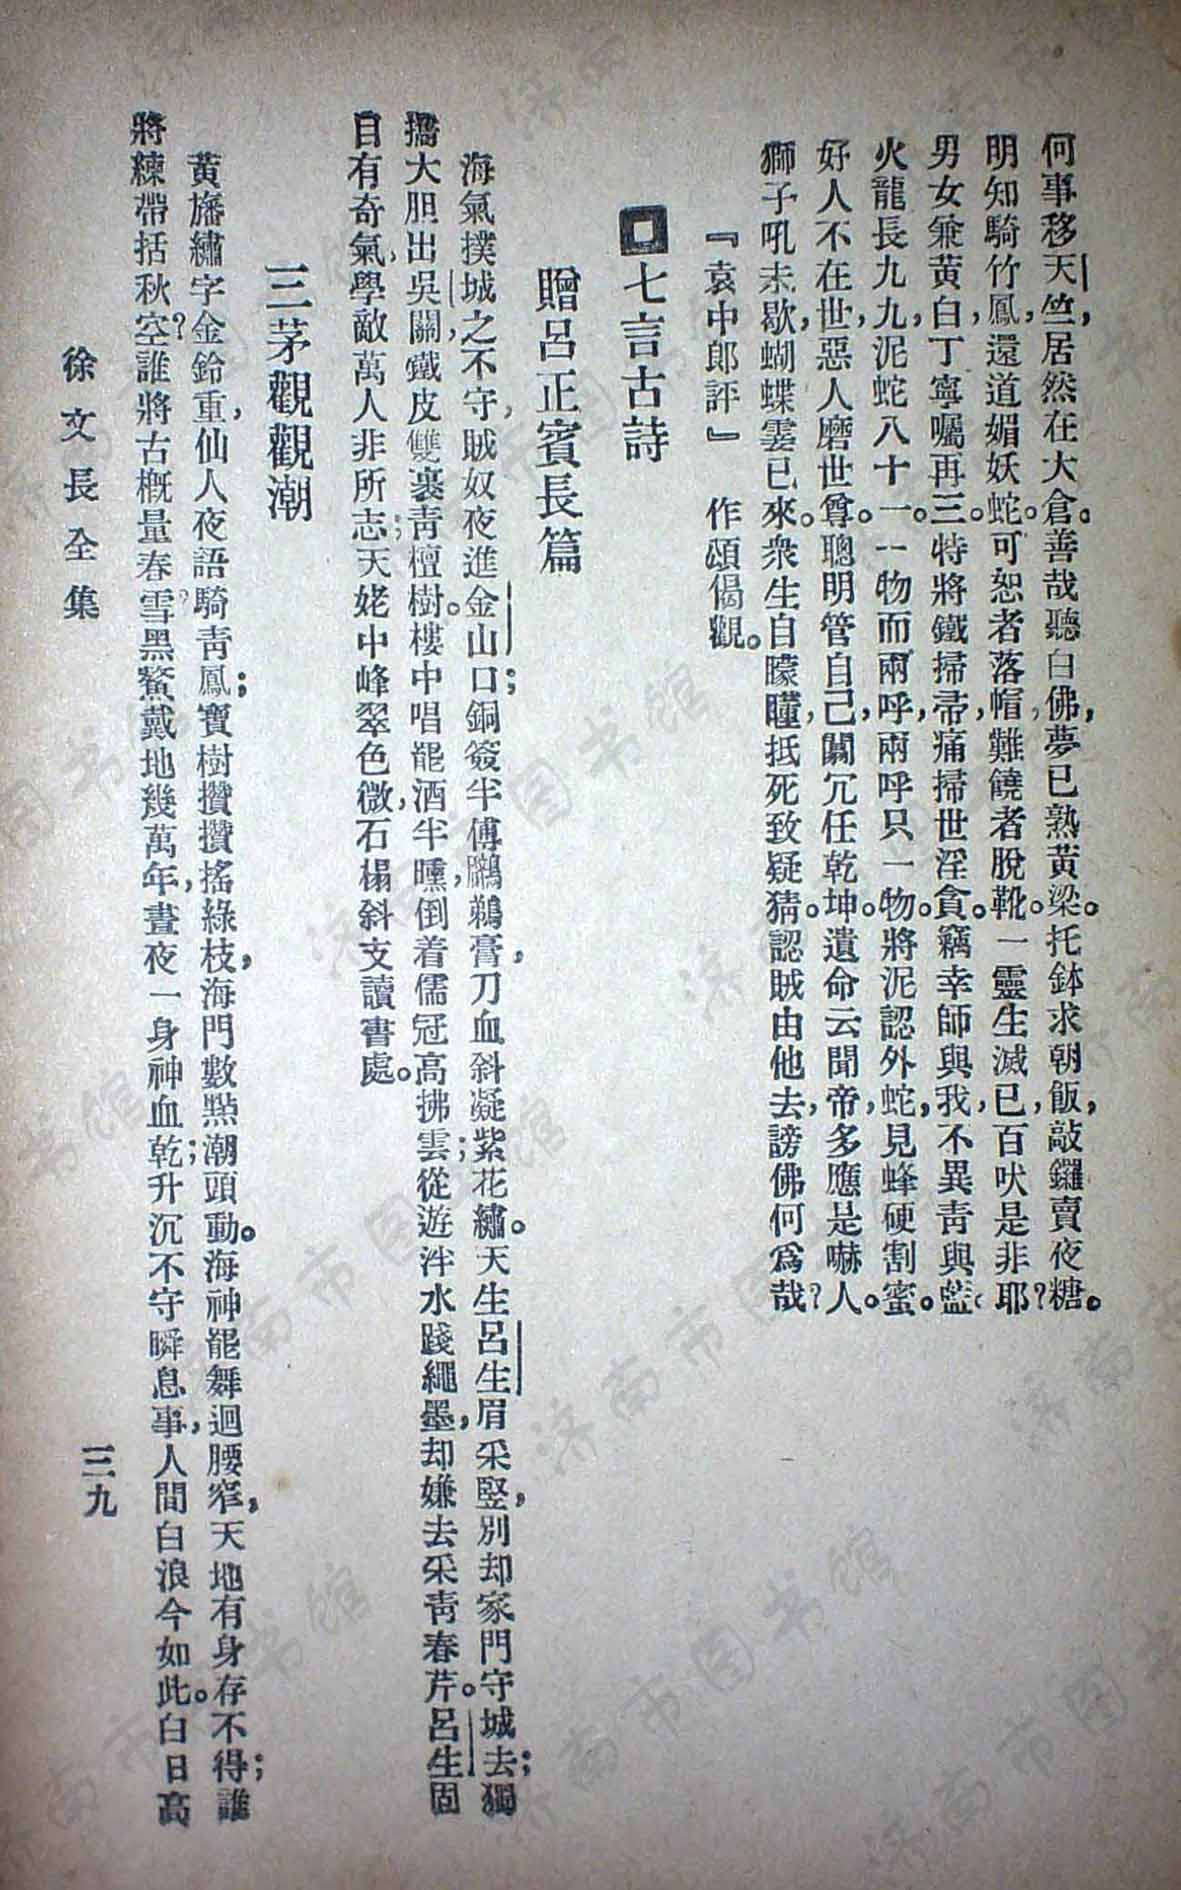 何事移天竺，居然在大倉。善哉聽白佛，夢已熟黃梁。托鉢求朝飯，敲鑼賣夜糖。
明知騎竹鳳，還道媚妖蛇。可恕者落帽，難饒者脫靴。一靈生滅已，百吠是非耶？
男女兼黃白，丁寧囑再三。特將鐵掃帚，痛掃世淫貪。竊幸師與我，不異青與藍。
火龍長九九，泥蛇八十一。一物而兩呼，兩呼只一物。將泥認外蛇，見蜂硬割蜜。
好人不在世，惡人磨世尊。聰明管自己，闒冗任乾坤。遺命云聞帝，多應是嚇人。
獅子吼未歇，蝴蝶霎已來。衆生自矇瞳，抵死致疑猜。認賊由他去，謗佛何爲哉？
『袁中郎評』　作頌偈觀。
七言古詩
贈呂正賓長篇
海氣撲城之不守，賊奴夜進金山口；銅簽半傅鸊鵜膏，刀血斜凝紫花繡。天生呂生眉采竪，別却家門守城去；獨
攜大胆出吳關，鐵皮雙裹青檀樹。樓中唱罷酒半曛，倒着儒冠高拂雲；從遊泮水踐繩墨，却嫌去采青春芹。呂生固
自有奇氣，學敵萬人非所志；天姥中峰翠色微，石榻斜支讀書處。
三茅觀觀潮
黃旛繡字金鈴重，仙人夜語騎青鳳；寶樹攢攢搖綠枝，海門數點潮頭動。海神罷舞迴腰窄，天地有身存不得；誰
將練帶括秋空？誰將古概量春雪？黑鰲戴地幾萬年，晝夜一身神血乾；升沉不守瞬息事，人間白浪今如此。白日高
徐文長全集
三九
济南市图书馆